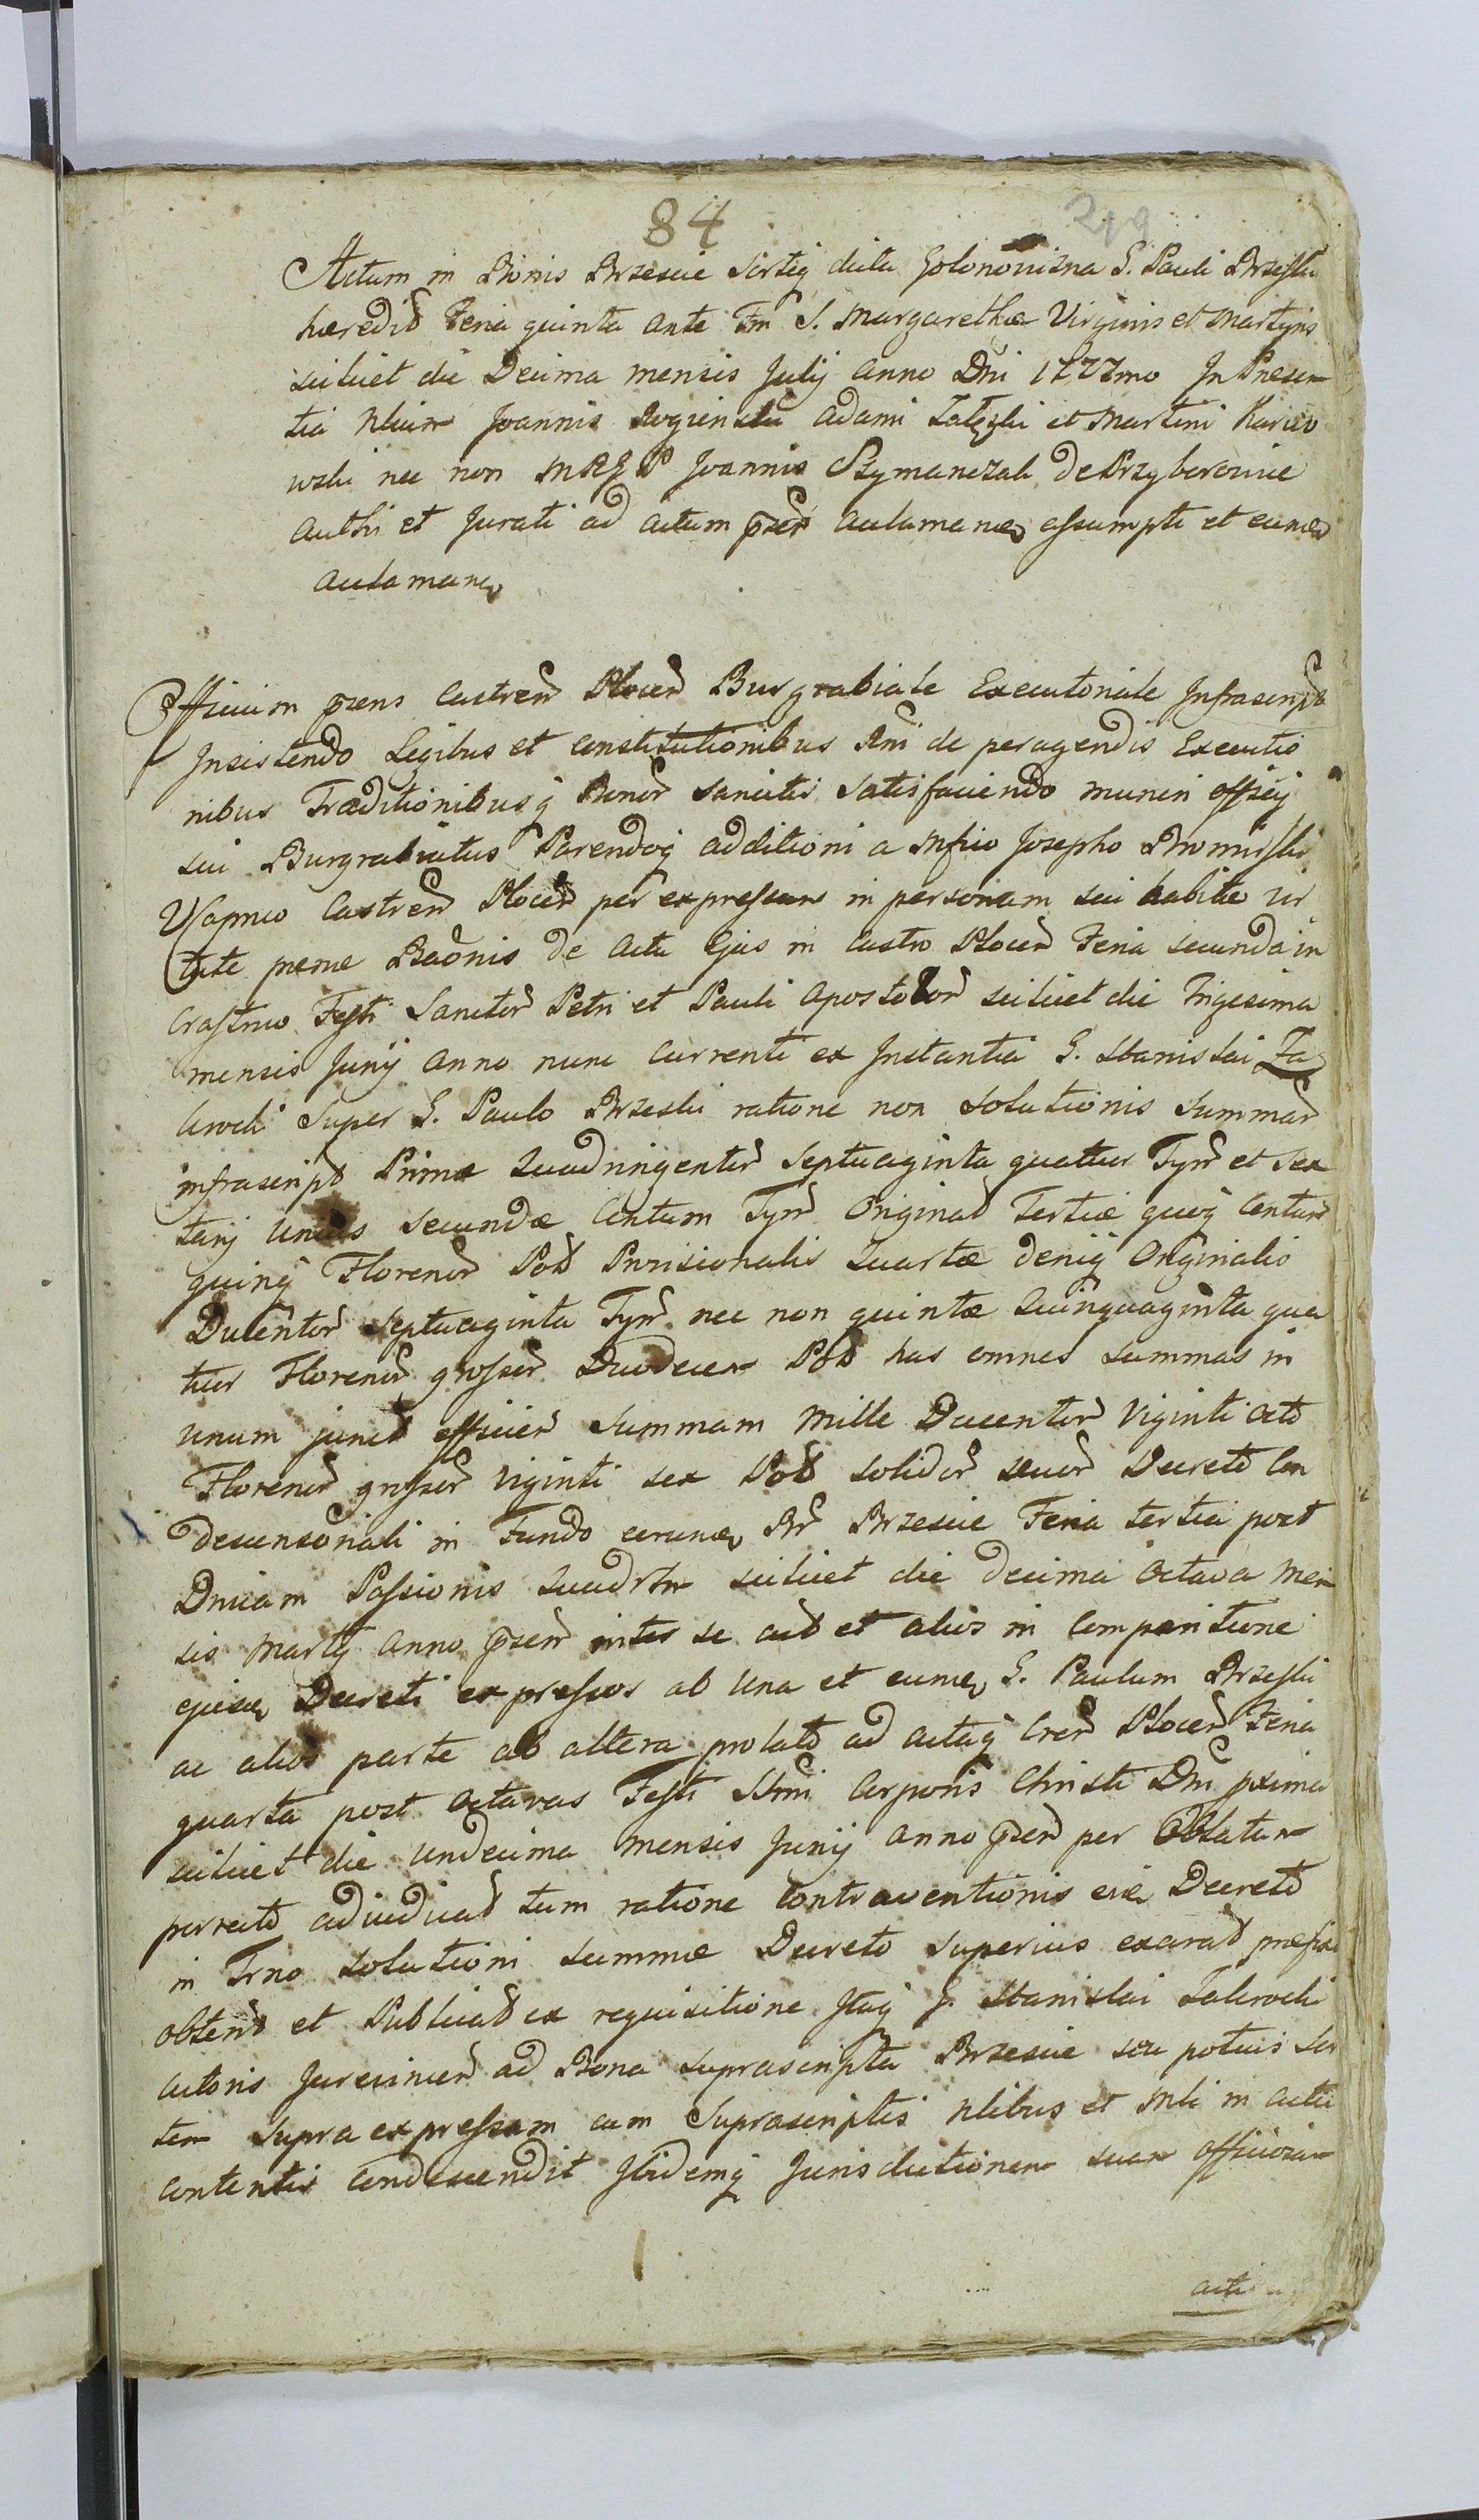 84
299
Actum in Bonis Brzescie Sorteq dicta Golonowizna G. Pauli Brzeski
haeredit Feria quinta ante Fm S. Margarethae Virginis et Martyris
scilicet die Decima mensis July anno Dni 1777mo In Praesen
tia Nbium Joannis Rogienski Adami Zaleski et Martini Karw
wski nec non MRGP Joannis Szymanczak de Przyborowie
authi et Jurati ad actum pñsen actamane assumpti et eum
actamane
Officium pñens Castren Plocen Burgrabiale Executoriale Infrascript
Insistendo Legibus et Constitutionibus Rni de peragendis Executio
nibus Traditionibusq Bonor sancitis satisfaciendo muneri officij
sui Burgrabiatus Parendoq additioni a Mfico Josepho Bromirski
Vicapneo Castren Plocen per expressum in personam sui habitae vir
tute praemae Bconis de Actu Ejus in Castro Plocen Feria secunda in
Crastino Festi Sanctor Petri et Pauli Apostolor scilicet die Trigesima
mensis Juny anno nunc currenti ex Instantia G. Stanislai Za
lewski Super G. Paulo Brzeski ratione non solutionis Summar
infrascript Primae Quadringentor Septuaginta quatuor Tynf et Sex
tarij unius secundae Centum Tynf Originat Tertiae quoq Centum
quinq Florenor Pol Provisionalis Quartae deniq Originalis
Ducentor Septuaginta Tynf nec non quintae Quinquaginta qua
tuor Florenor grossor Duodecem Pol has omnes Summas in
unum junct efficien Summam Mille Ducentor Viginti octo
Florenor grossor Viginti sex Pol solidor Decreto Con
descensoriali in Fundo eorum Br Brzescie Feria tertia post
Dnicam Passionis Quadrlm scilicet die decima octava Men
sis Marty anno pñsen inter se act et alios in Comparitione
ejusd Decreti expressos ab una et eum G. Paulum Brzeski
ac alios parte ab altera prolato ad actaq Cren Plocen Feria
quarta post octavas Festi Ssmi Corporis Christi Dni pxima
scilicet die undecima mensis Juny anno pñsen per Oblatam
porrecto adjudicat tum ratione Contraventionis ejus Decreto
in Trno solutioni Summae Decreto superius exarat praefixo
obtent et Publicat ex requisitione Itaq G. Stanislai Zalewski
actoris Jurevincen ad Bona suprascripta Brzescie seu potius Sor
tem supra expressam cum Suprascriptis Nbilibus et Mli in actu
contentis Condescendit Ibidemq Jurisdictionem suam officiosam
acti